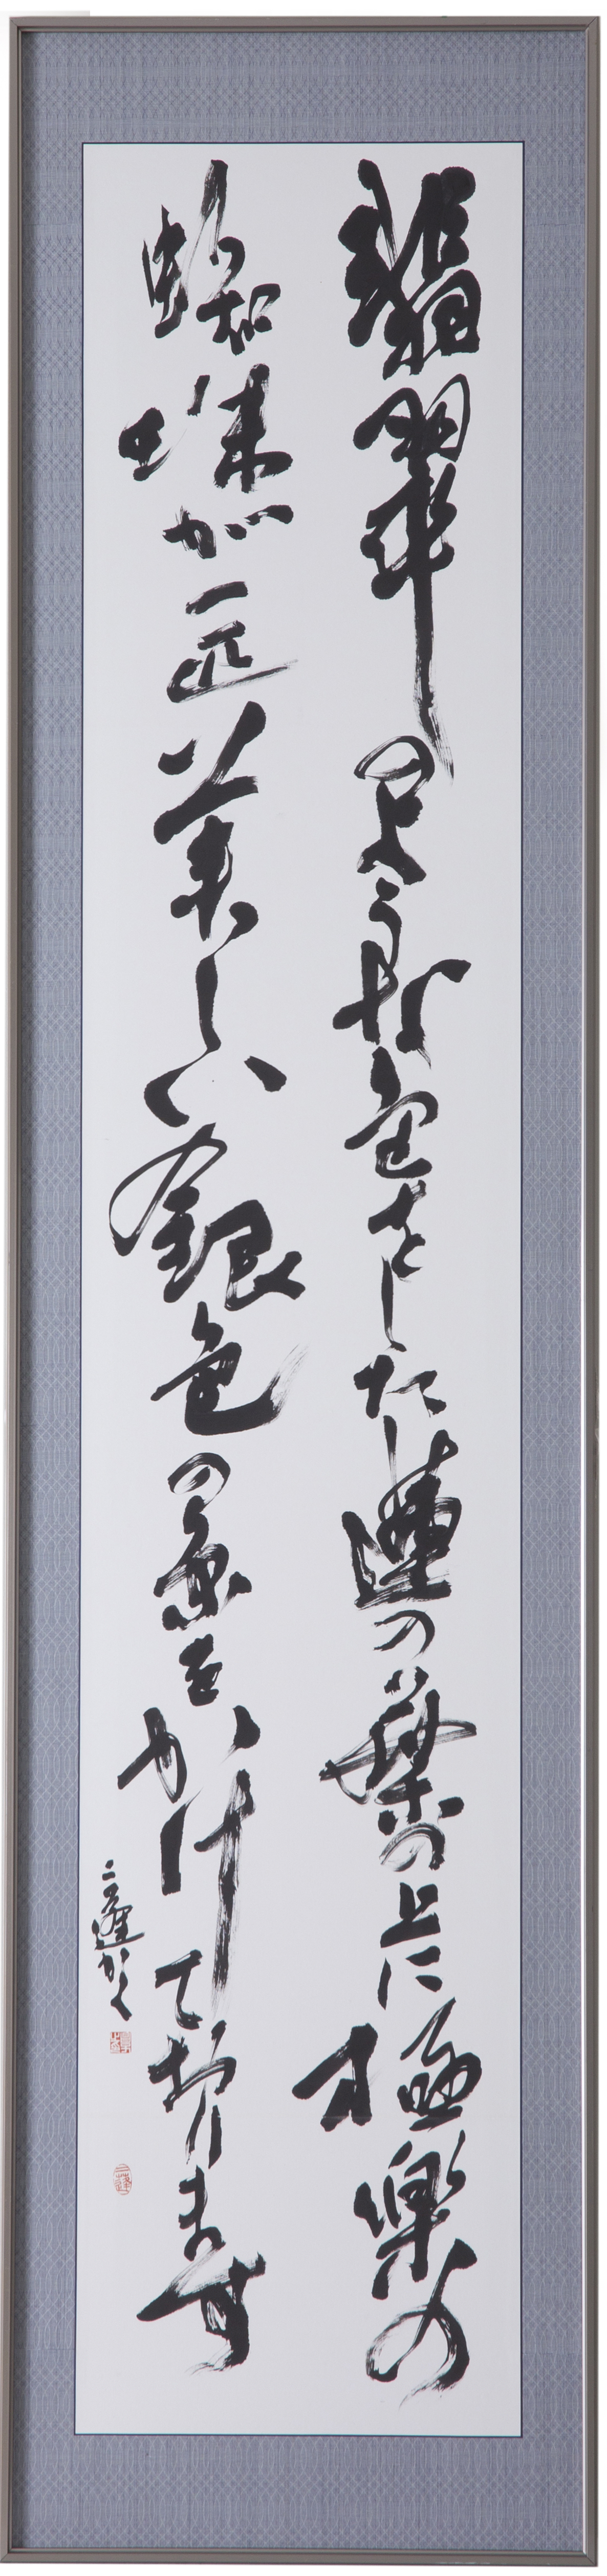 翡翠のような色をした蓮の葉の上に極楽の
蜘蛛が一匹美しい銀色の糸をかけております
かく